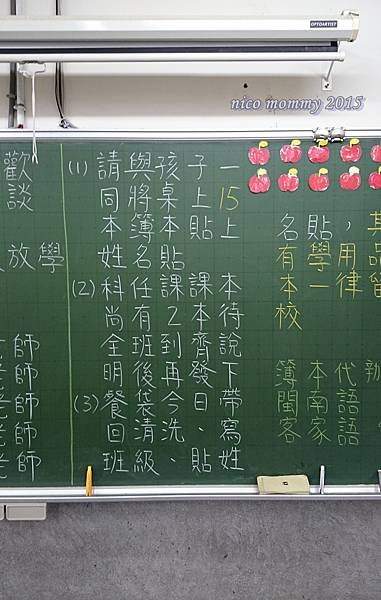 OPTOARTIST
nico mommy 2015
歡
談
放學
師
老師
老師
老師
老師
(1) 請與孩子一
同將桌上15
本簿本貼上
姓名貼
(2) 科任課課本
尚有2本待
全班到齊說
明後再發下
(3) 餐袋今日帶
回清洗、寫
班級、貼姓
名貼，其
有學用品
本一律留
校
簿本代辦
閩南語
客家語